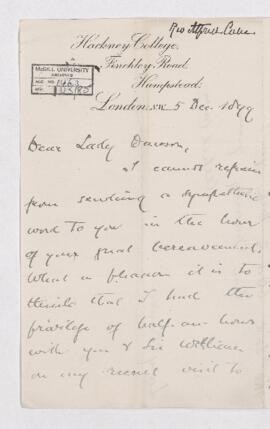 Rev Alfred Cave
Hackney College,
Finchley Road,
Hampstead.
McGILL UNIVERSITY
ARCHIVES
ACC. NO. 1463
REF.
London, N.W. 5 Dec. 1899
Dear Lady Dawson,
I cannot refrain
from sending a sympathetic
word to you in the hour
of your great bereavement.
What a pleasure it is to
think that I had the
privilege of half-an-hour
with you & Sir William
on my recent visit to